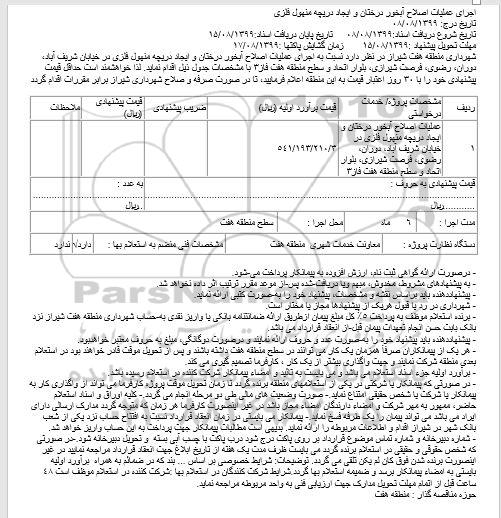 اجرای عملیات اصلاح آبخور درختان و ایجاد دریچه منهول فلزی
تاریخ درج: ۰۸/۰۸/۱۳۹۹
تاریخ شروع دریافت اسناد:۰۸/۰۸/۱۳۹۹ تاریخ پایان دریافت اسناد:۱۵/۰۸/۱۳۹۹
مهلت تحویل پیشنهاد :۱۵/۰۸/۱۳۹۹ زمان گشایش پاکتها :۱۷/۰۸/۱۳۹۹
شهرداری منطقه هفت شیراز در نظر دارد نسبت به اجرای عملیات اصلاح آبخور درختان و ایجاد دریچه منهول فلزی در خیابان شریف آباد،
دوران، رضوی، فرصت شیرازی، بلوار اتحاد و سطح منطقه هفت فاز۳ با مشخصات جدول ذیل اقدام نماید. لذا خواهشمند است حداقل قیمت
پیشنهادی خود را با ۳۰ روز اعتبار قیمت به این منطقه اعلام فرمایید، تا در صورت صرفه و صلاح شهرداری شیراز برابر مقررات اقدام گردد
ردیف مشخصات پروژه/ خدمات درخواستی قیمت برآورد اولیه (ریال) ضریب پیشنهادی قیمت پیشنهادی (ریال) ملاحظات
۱ عملیات اصلاح آبخور درختان و
ایجاد دریچه منهول فلزی در
خیابان شریف آباد، دوران، ۵۴۱/۱۹۳/۲۱۰/۳
رضوی، فرصت شیرازی، بلوار
اتحاد و سطح منطقه هفت فاز۳
قیمت پیشنهادی به حروف : به عدد :
ریال ریال
مدت اجرا : ۶ ماه محل اجرا : سطح منطقه هفت
دستگاه نظارت پروژه : معاونت خدمات شهری منطقه هفت مشخصات فنی منضم به استعلام بها : دارد/۷ ندارد
- درصورت ارائه گواهی ثبت نام، ارزش افزوده به پیمانکار پرداخت می‌شود.
- به پیشنهادهای مشروط، مخدوش، مبهم ویا دریافت‌شده پس‌از موعد مقرر ترتیب اثر داده نخواهد شد.
- پیشنهاددهنده باید براساس نقشه و مشخصات، پیشنهاد خود را به‌صورت کتبی ارائه نماید.
- شهرداری در رد یا قبول هریک از پیشنهادها مجاز یا مختار است.
- برنده استعلام موظف به پرداخت ۵٪ کل مبلغ پیمان ازطریق ارائه ضمانتنامه بانکی یا واریز نقدی به‌حساب شهرداری منطقه هفت شیراز نزد
بانک بابت حسن انجام تعهدات پیمان قبل‌از انعقاد قرارداد می باشد.
- پیشنهاددهنده باید پیشنهاد خود را به‌صورت عدد و حروف ارائه نمایند و درصورت دوگانگی، مبلغ به حروف معتبر خواهدبود.
- هر یک از پیمانکاران صرفاً همزمان یک کار می توانند در سطح منطقه هفت داشته باشند و پس از تحویل موقت قادر خواهند بود در استعلام
بعدی منطقه شرکت نمایند و جهت واگذاری بیشتر از یک کار ، کارفرما تصمیم گیری می کند.
- برآورد اولیه جزء اسناد استعلام می باشد و می بایست به تائید و امضاء پیمانکار شرکت کننده در استعلام رسیده باشد.
- در صورتی که پیمانکار یا شرکتی در یکی از استعلامهای منطقه برنده گردد تا زمان تحویل موقت پروژه کارفرما می تواند از واگذاری کار به
پیمانکار یا شرکت یا شخص حقیقی امتناع نماید.- صورت وضعیت های مالی طی دو مرحله انجام می گردد.- کلیه اوراق و اسناد استعلام
حاضر، ممهور به مهر شرکت و امضاء دارندگان امضاء مجاز باشد در غیر اینصورت کارفرما هر زمان که متوجه گردد مدارک ارسالی دارای
ایراد می باشد می تواند پیمان را یک طرفه فسخ نماید.- پیمانکار می بایستی در زمان انعقاد قرارداد نسبت به افتتاح حساب نزد یکی از شعب
بانک شهر در شیراز اقدام و اطلاعات مربوطه را ارائه نماید. بدیهی است مطالبات پیمانکار جهت پرداخت به این حساب واریز خواهد شد.
- شماره دبیرخانه و شماره تماس موضوع قرارداد بر روی پاکت درج شود درب پاکت با چسب آبی بسته و تحویل دبیرخانه شود.-در صورتی
که شخص حقوقی و حقیقی در استعلام برنده گردد می بایست ظرف مدت یک هفته از تاریخ ابلاغ جهت انعقاد قرارداد مراجعه نمایید در غیر
اینصورت برنده شدن فوق کان لم یکن تلقی می گردد. توضیحات: شرایط خصوصی بر اساس ... بند که در ضمائم به همراه برآورد اولیه
بایستی به امضاء پیمانکار برسد و ضمیمه استعلام بها گردد.شرایط شرکت کنندگان در استعلام بها :شرکت کننده در استعلام موظف است ۴۸
ساعت قبل از اتمام مهلت تحویل مدارک جهت ارزیابی فنی به واحد مربوطه مراجعه نماید.
حوزه مناقصه گذار : منطقه هفت